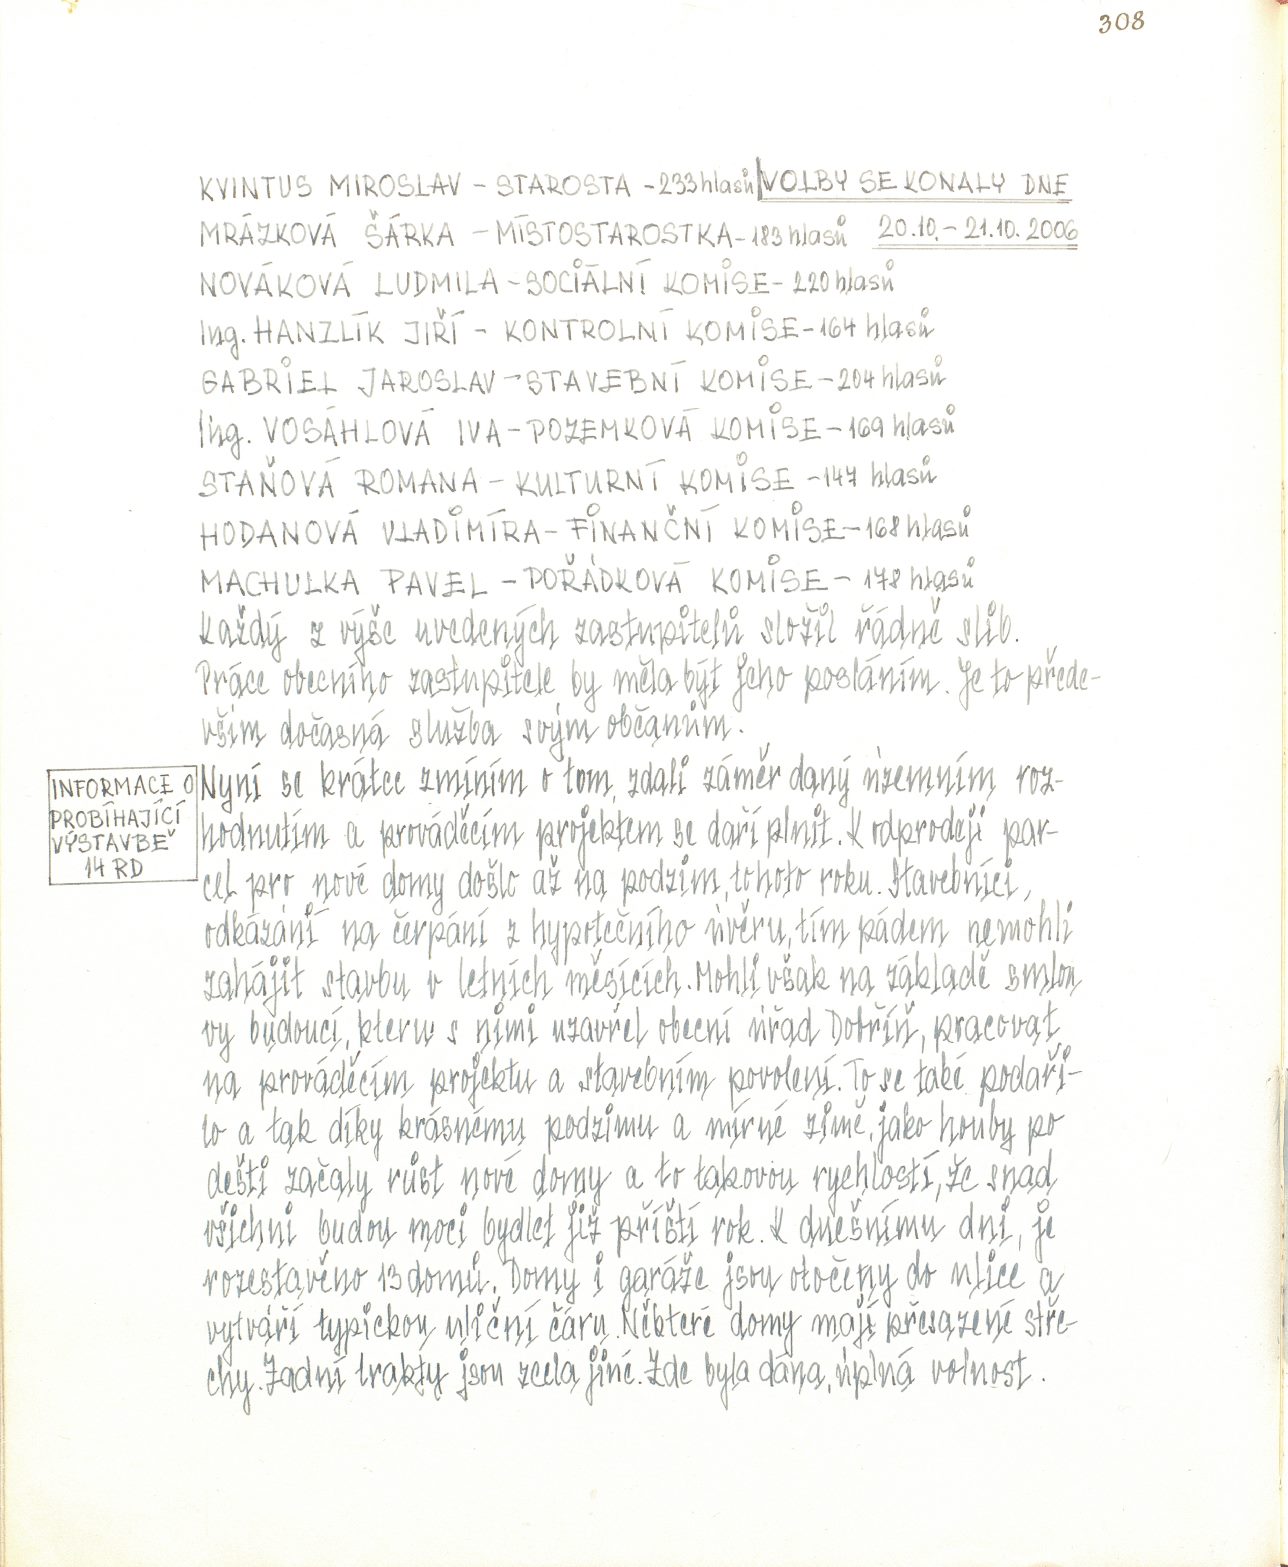 308
KVINTUS MIROSLAV - STAROSTA - 233 hlasů VOLBY SE KONALY DNE
MRÁZKOVÁ ŠÁRKA - MÍSTOSTAROSTKA - 183 hlasů 20.10. - 21.10. 2006
NOVÁKOVÁ LUDMILA - SOCIÁLNÍ KOMISE - 220 hlasů
Ing. HANZLÍK JIŘÍ - KONTROLNÍ KOMISE - 164 hlasů
GABRIEL JAROSLAV - STAVEBNÍ KOMISE - 204 hlasů
Ing. VOSÁHLOVÁ IVA - POZEMKOVÁ KOMISE - 169 hlasů
STAŇOVÁ ROMANA - KULTURNÍ KOMISE - 147 hlasů
HODANOVÁ VLADIMÍRA - FINANČNÍ KOMISE - 168 hlasů
MACHULKA PAVEL - POŘÁDKOVÁ KOMISE - 178 hlasů
Každý z výše uvedených zastupitelů složil řádně slib.
Práce obecního zastupitele by měla být jeho posláním. Je to přede-
vším dočasná služba svým občanům.
INFORMACE O
PROBÍHAJÍCÍ
VÝSTAVBĚ
14 RD
Nyní se krátce zmíním o tom, zdali záměr daný územním roz-
hodnutím a prováděcím projektem se daří plnit. K odprodeji par-
cel pro nové domy došlo až na podzim, tohoto roku. Stavebníci,
odkázáni na čerpání z hypotečního úvěru, tím pádem nemohli
zahájit stavbu v letních měsících. Mohli však na základě smlou
vy budoucí, kterou s nimi uzavřel obecní úřad Dobříň, pracovat
na prováděcím projektu a stavebním povolení. To se také podaři-
lo a tak díky krásnému podzimu a mírné zimě, jako houby po
dešti začaly růst nové domy a to takovou rychlostí, že snad
všichni budou moci bydlet již příští rok. K dnešnímu dni, je
rozestavěno 13 domů. Domy i garáže jsou otočeny do ulice a
vytváří typickou uliční čáru. Některé domy mají přesazené stře-
chy. Zadní trakty jsou zcela jiné. Zde byla dána, úplná volnost.